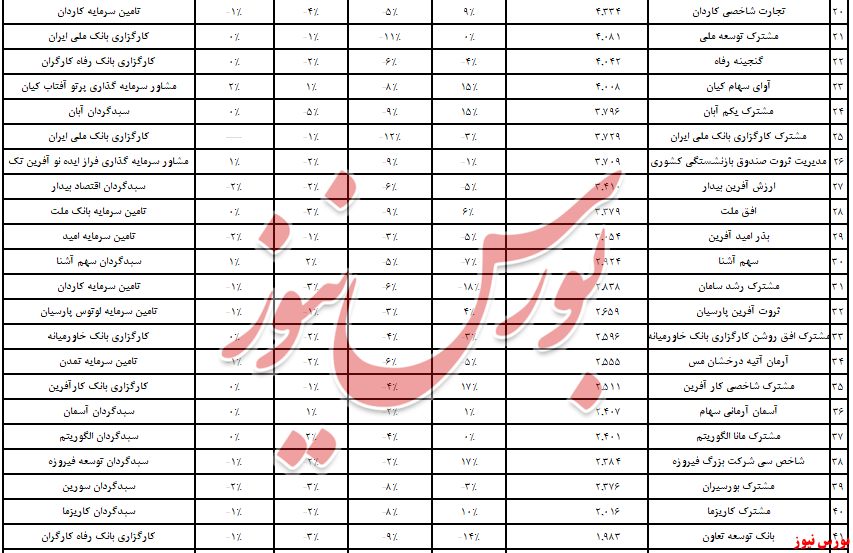 ۲۰ تجارت شاخصی کاردان ۴.۳۳۴ ۹٪ -۵٪ -۴٪ -۱٪ تامین سرمایه کاردان
۲۱ مشترک توسعه ملی ۴.۰۸۱ ۰٪ -۱۱٪ -۱٪ ۰٪ کارگزاری بانک ملی ایران
۲۲ گنجینه رفاه ۴.۰۴۲ -۴٪ -۶٪ -۲٪ ۰٪ کارگزاری بانک رفاه کارگران
۲۳ آوای سهام کیان ۴.۰۰۸ ۱۵٪ -۸٪ ۱٪ ۲٪ مشاور سرمایه گذاری پرتو آفتاب کیان
۲۴ مشترک یکم آبان ۳.۷۹۶ ۱۵٪ -۹٪ -۵٪ ۰٪ سبدگردان آبان
۲۵ مشترک کارگزاری بانک ملی ایران ۳.۷۲۹ -۳٪ -۱۲٪ -۱٪ —— کارگزاری بانک ملی ایران
۲۶ مدیریت ثروت صندوق بازنشستگی کشوری ۳.۷۰۹ -۱٪ -۹٪ -۲٪ ۱٪ مشاور سرمایه گذاری فراز ایده نو آفرین تک
۲۷ ارزش آفرین بیدار ۳.۴۱۰ -۵٪ -۶٪ -۲٪ -۲٪ سبدگردان اقتصاد بیدار
۲۸ افق ملت ۳.۳۷۹ ۶٪ -۹٪ -۳٪ ۰٪ تامین سرمایه بانک ملت
۲۹ بذر امید آفرین ۳.۰۵۴ -۵٪ -۳٪ -۱٪ -۲٪ تامین سرمایه امید
۳۰ سهم آشنا ۲.۹۲۴ -۷٪ -۵٪ ۲٪ ۱٪ سبدگردان سهم آشنا
۳۱ مشترک رشد سامان ۲.۸۳۸ -۱۸٪ -۶٪ -۳٪ -۱٪ تامین سرمایه کاردان
۳۲ ثروت آفرین پارسیان ۲.۶۵۹ ۴٪ -۳٪ -۱٪ -۱٪ تامین سرمایه لوتوس پارسیان
۳۳ مشترک افق روشن کارگزاری بانک خاورمیانه ۲.۵۹۶ -۳٪ -۴٪ -۲٪ ۰٪ کارگزاری بانک خاورمیانه
۳۴ آرمان آتیه درخشان مس ۲.۵۵۵ -۵٪ -۶٪ -۲٪ -۱٪ تامین سرمایه تمدن
۳۵ مشترک شاخصی کار آفرین ۲.۵۱۱ ۱۷٪ -۴٪ -۱٪ ۰٪ کارگزاری بانک کارآفرین
۳۶ آسمان آرمانی سهام ۲.۴۰۷ ۱٪ -۲٪ ۱٪ ۰٪ سبدگردان آسمان
۳۷ مشترک مانا الگوریتم ۲.۴۰۱ ۰٪ -۴٪ ۲٪ ۰٪ سبدگردان الگوریتم
۳۸ شاخص سی شرکت بزرگ فیروزه ۲.۳۸۴ ۱۷٪ -۲٪ -۲٪ -۱٪ سبدگردان توسعه فیروزه
۳۹ مشترک بورسیران ۲.۳۷۶ -۳٪ -۸٪ -۳٪ -۲٪ سبدگردان سورین
۴۰ مشترک کاریزما ۲.۰۱۶ ۱۰٪ -۸٪ -۲٪ -۱٪ سبدگردان کاریزما
۴۱ بانک توسعه تعاون ۱.۹۸۳ -۱۴٪ -۹٪ -۳٪ -۱٪ کارگزاری بانک رفاه کارگران
بورس نیوز
بورس نیوز